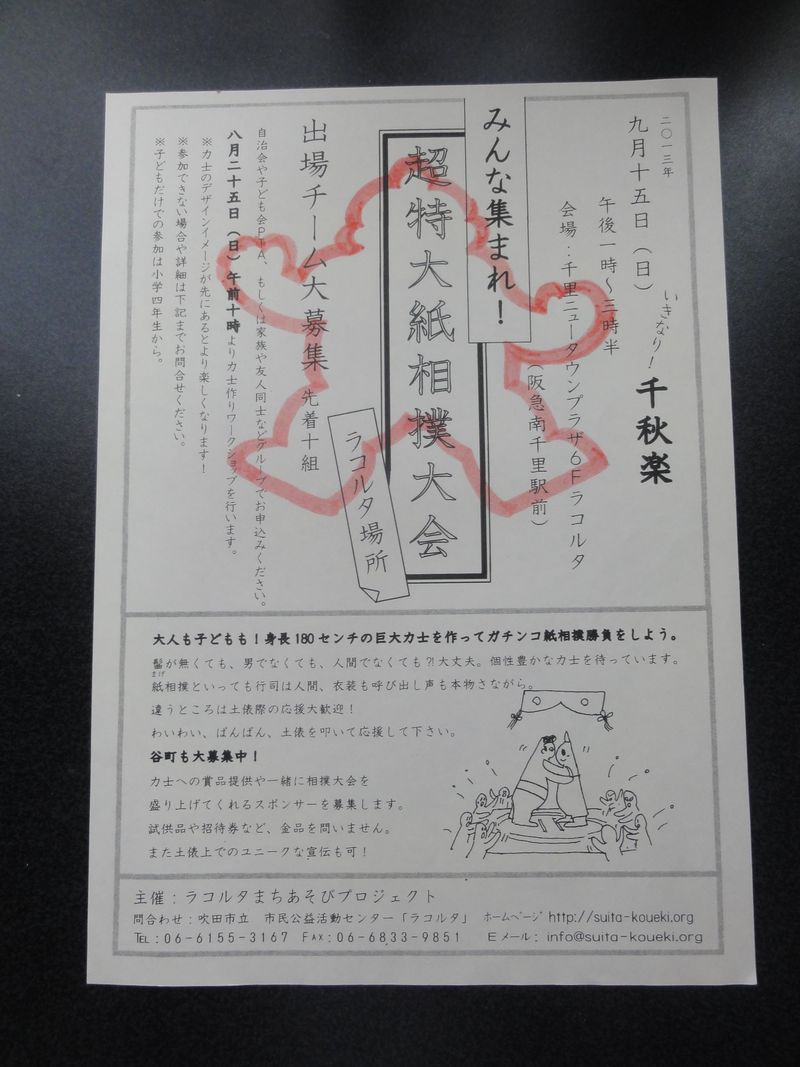 二〇一三年
九月十五日（日）
いきなり！千秋楽
午後一時～三時半
会場：千里ニュータウンプラザ６Ｆラコルタ
（阪急南千里駅前）
みんな集まれ！
超特大紙相撲大会
ラコルタ場所
出場チーム大募集 先着十組
自治会や子ども会ＰＴＡ、もしくは家族や友人同士などグループでお申込みください。
八月二十五日（日）午前十時より力士作りワークショップを行います。
※力士のデザインイメージが先にあるとより楽しくなります！
※参加できない場合や詳細は下記までお問合せください。
※子どもだけでの参加は小学四年生から。
大人も子どもも！身長180センチの巨大力士を作ってガチンコ紙相撲勝負をしよう。
髷が無くても、男でなくても、人間でなくても?!大丈夫。個性豊かな力士を待っています。
まげ
紙相撲といっても行司は人間、衣装も呼び出し声も本物さながら。
違うところは土俵際の応援大歓迎！
わいわい、ばんばん、土俵を叩いて応援して下さい。
谷町も大募集中！
力士への賞品提供や一緒に相撲大会を
盛り上げてくれるスポンサーを募集します。
試供品や招待券など、金品を問いません。
また土俵上でのユニークな宣伝も可！
主催：ラコルタまちあそびプロジェクト
問合わせ：吹田市立　市民公益活動センター「ラコルタ」　ホームページ http://suita-koueki.org
TEL：06-6155-3167　FAX：06-6833-9851　Ｅメール：info@suita-koueki.org